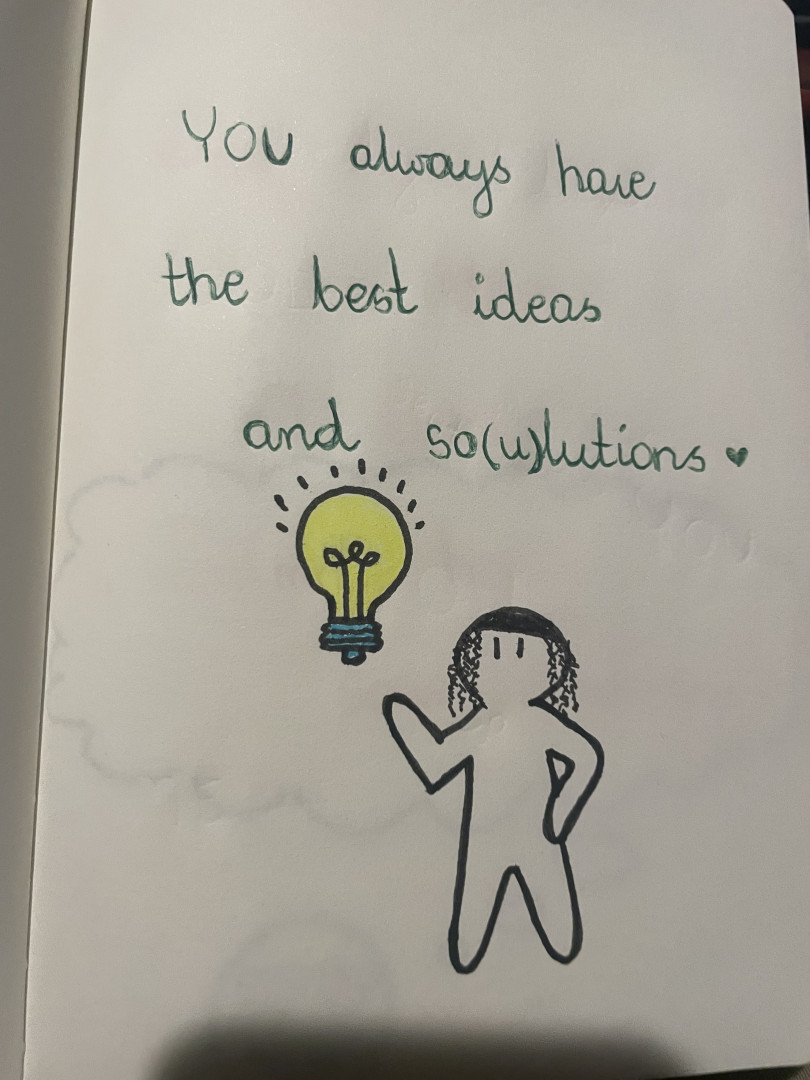 YOU always have
the best ideas
and so(u)lutions ♥
YOU